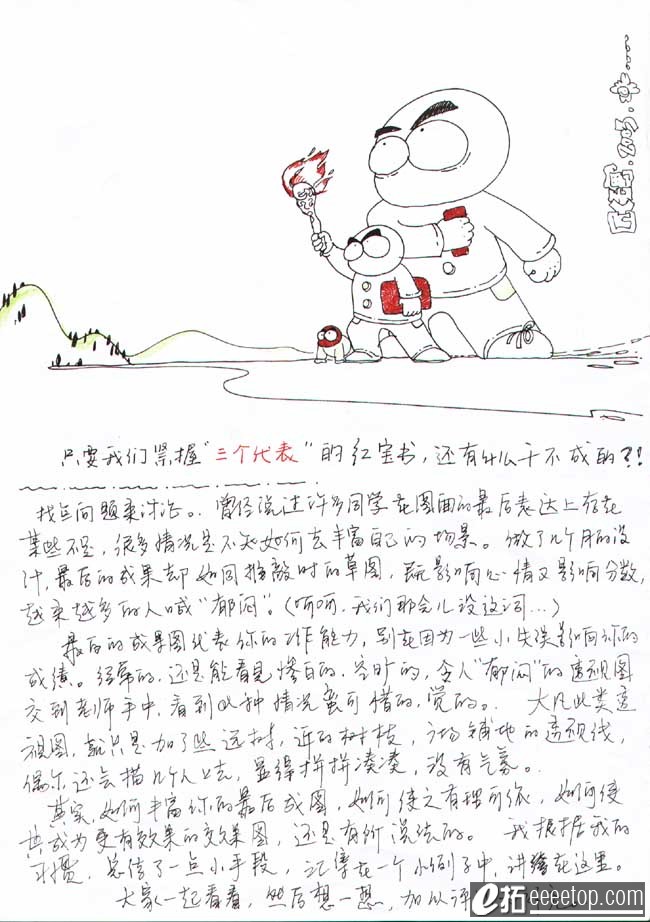 只要我们紧握"三个代表"的红宝书,还有什么干不成的?!
找些问题来讨论。. 曾经说过许多同学在图面的最后表达上存在
某些不足,很多情况是不知如何去丰富自己的场景。做了几个月的设
计,最后的成果却如同推敲时的草图,既影响心情又影响分数,
越来越多的人喊"郁闷"。(呵呵.我们那会儿没这词...)
最后的成果图代表你的工作能力,别在因为一些小失误影响你的
成绩。经常的.还是能看见惨白的,空旷的,令人"郁闷"的透视图
交到老师手中,看到此种情况蛮可惜的,觉的。. 大凡此类透
视图,就只是加了些远树,近的树枝,广场铺地的透视线,
偶尔还会描几个人上去,显得拼拼凑凑,没有气氛。.
其实,如何丰富你的最后成图,如何使之有理可依,如何使
其成为更有效果的交效果图,还是有所说法的。 我根据我的
习惯,总结了一点小手段,汇集在一个小例子中,讲释在这里。
大家一起看看,然后想一想,加以评
e拓 eeeetop.com
2003